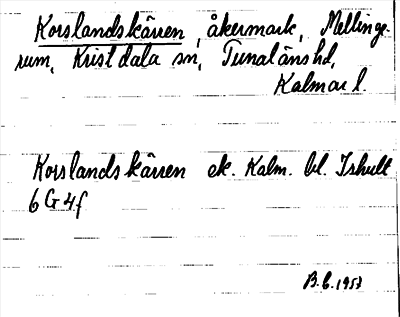 Korslandskärren, åkermark, Mellinge-
rum, Kristdala sn, Tunaläns hd,
Kalmar l.
Korslandskärren ek. Kalm. bl. Ishult
6 G 4 f
B.C. 1953